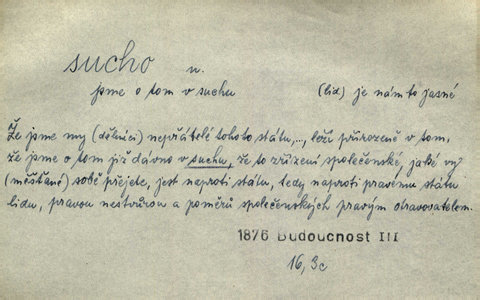 sucho n.
jsme o tom v suchu (lid) je nám to jasné
Že jsme my (dělníci) nepřátelé tohoto státu,..., leží přirozeně v tom,
že jsme o tom již dávno v suchu, že to zřízení společenské, jaké vy
(měšťané) sobě přejete, jest naproti státu, tedy naproti pravému státu
lidu, pravou nestvůrou a poměrů společenských pravým otravovatelem.
1876 Budoucnost III
16, 3c